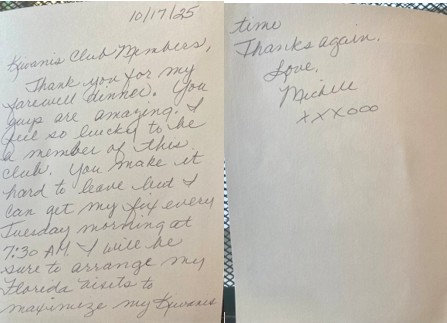 10/17/25
Kwanis Club Members,
Thank you for my
farewell dinner. You
guys are amazing. I
feel so lucky to be
a member of this
club. You make it
hard to leave but I
can get my fix every
Tuesday morning at
7:30 AM. I will be
sure to arrange my
Florida visits to
maximize my Kiwanis
time
Thanks again.
Love,
Michele
XXXOOO